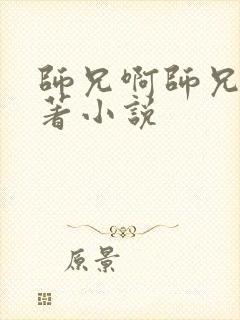 師兄啊師兄
著小説
原景